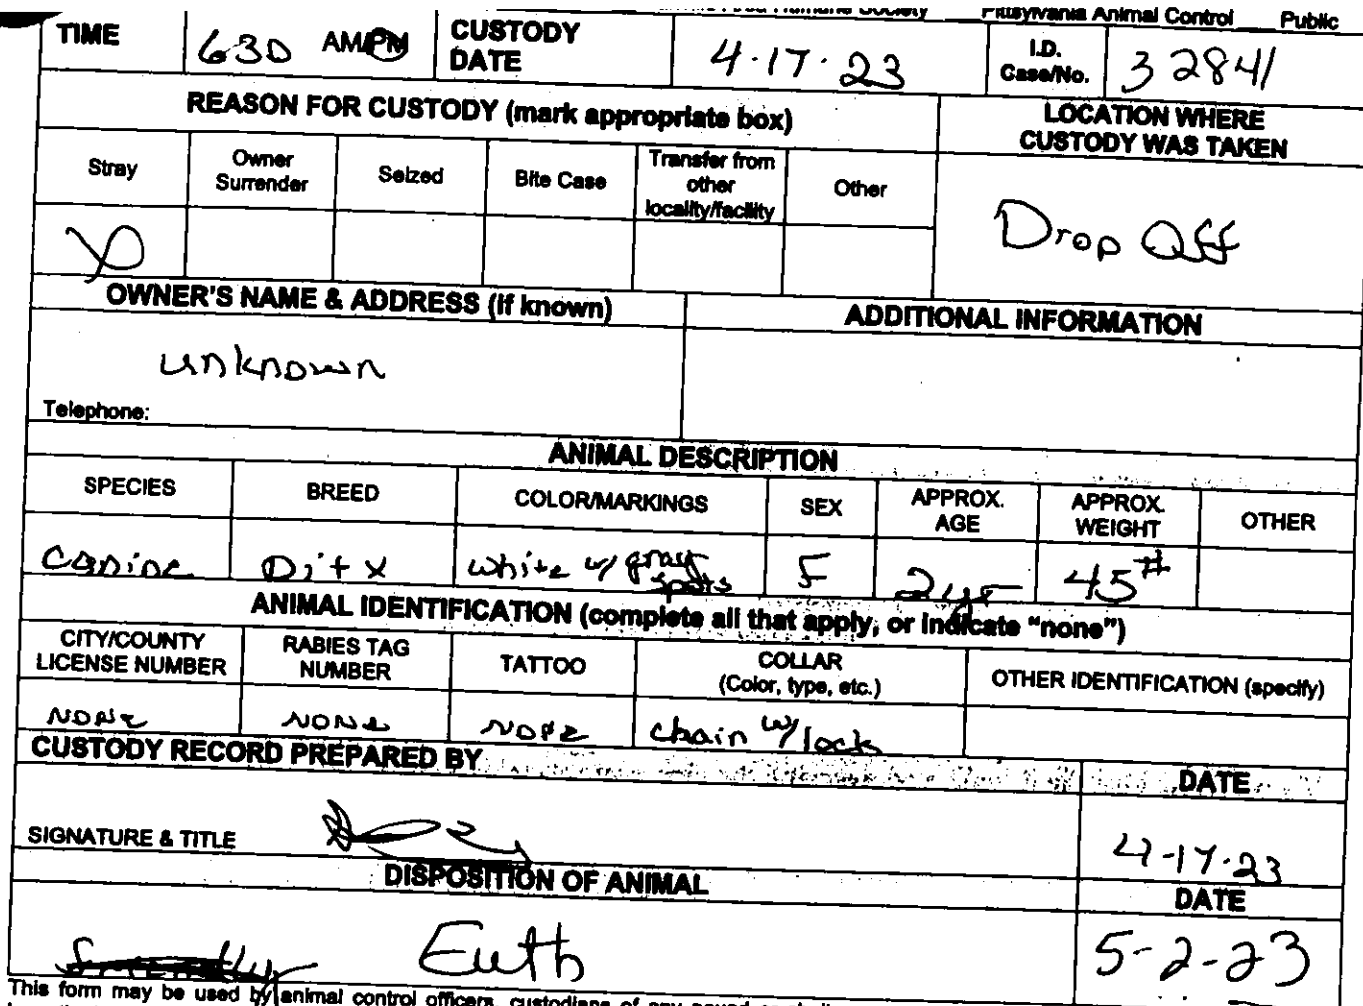 Humane Society Pittsylvania Animal Control Public
TIME 630 AM/PM CUSTODY DATE 4-17-23 I.D. Case/No. 32841
REASON FOR CUSTODY (mark appropriate box) LOCATION WHERE CUSTODY WAS TAKEN
Stray Owner Surrender Seized Bite Case Transfer from other locality/facility Other
X Drop Off
OWNER'S NAME & ADDRESS (if known) ADDITIONAL INFORMATION
unknown
Telephone:
ANIMAL DESCRIPTION
SPECIES BREED COLOR/MARKINGS SEX APPROX. AGE APPROX. WEIGHT OTHER
Canine Pit x white w/ gray spots F 2yr 45#
ANIMAL IDENTIFICATION (complete all that apply, or indicate "none")
CITY/COUNTY LICENSE NUMBER RABIES TAG NUMBER TATTOO COLLAR (Color, type, etc.) OTHER IDENTIFICATION (specify)
None None None chain w/ lock
CUSTODY RECORD PREPARED BY DATE
SIGNATURE & TITLE 4-17-23
DISPOSITION OF ANIMAL DATE
Euth 5-2-23
This form may be used by animal control officers, custodians of any pound